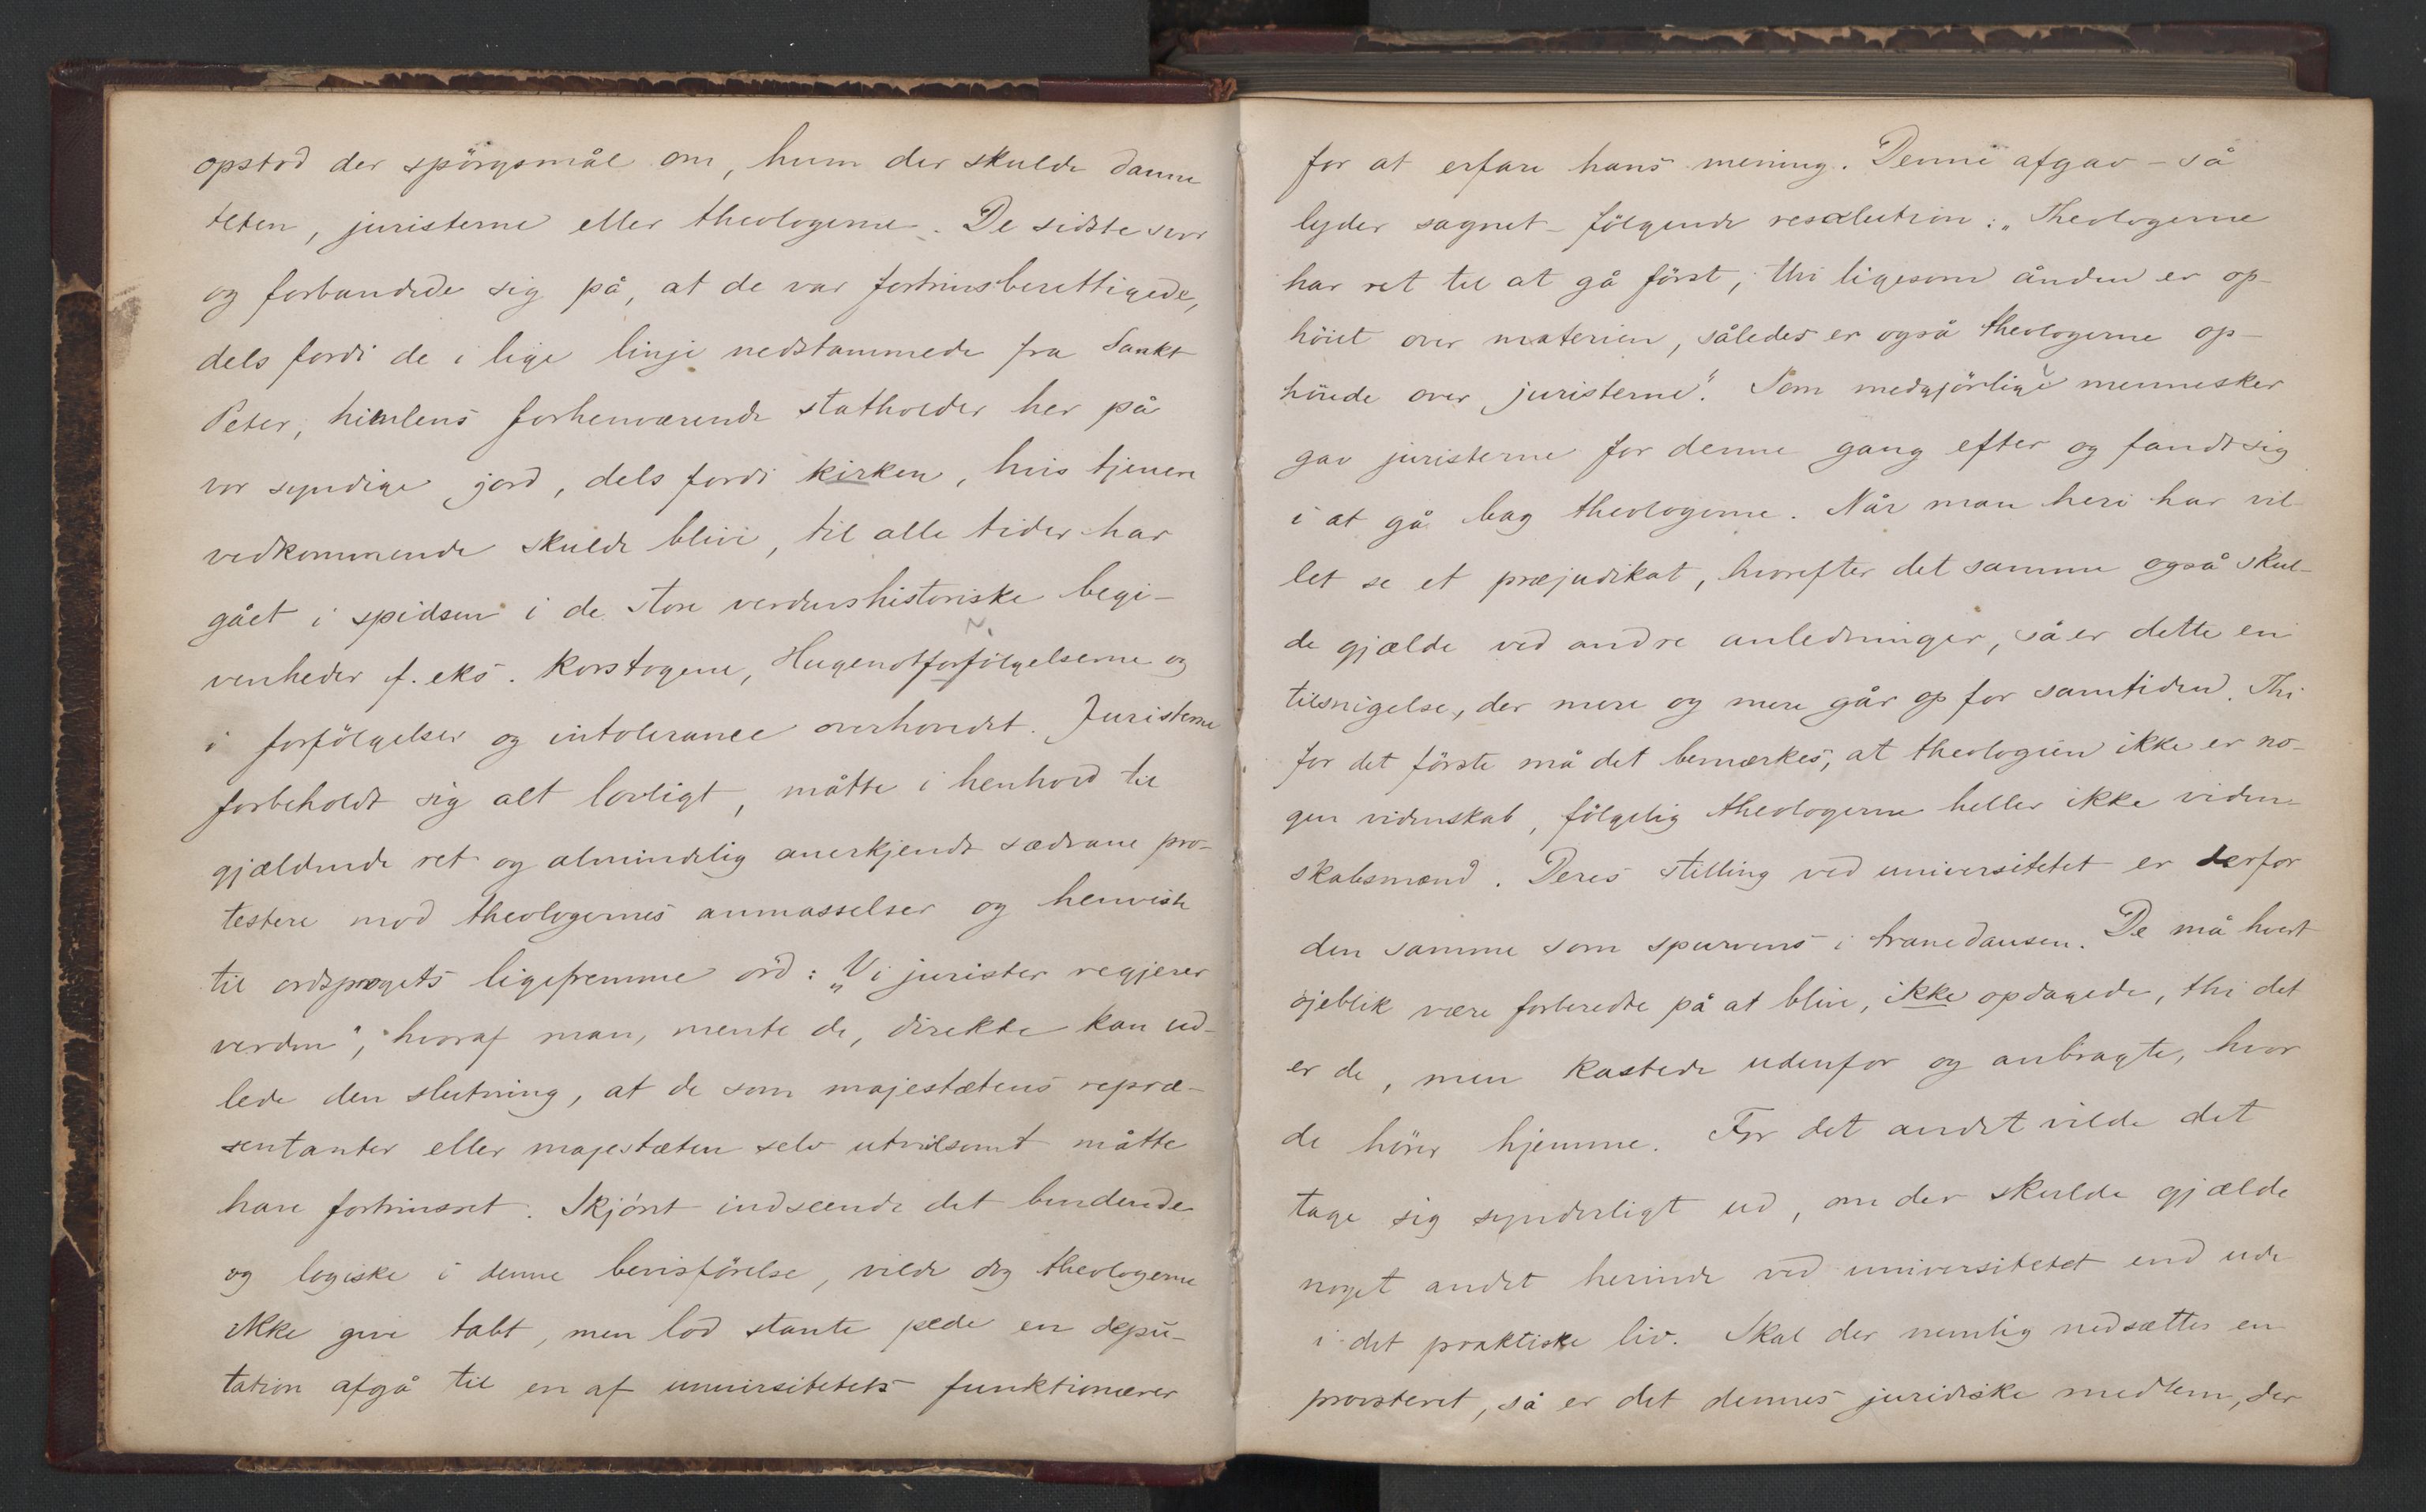 opstod der spörgsmål om, hvem der skulde danne
teten, juristerne eller theologerne. De sidste svor
og forbandede sig på, at de var fortrinsberettigede,
dels fordi de i lige linje nedstammede fra Sankt
Peter, himlens forhenværende statholder her på
vor syndige jord, dels fordi kirken, hvis tjenere
vedkommende skulde blive, til alle tider har
gået i spidsen i de store verdenshistoriske begi-
venheder f. eks. Korstogene, Hugenotforfölgelserne og
i forfölgelser og intolerance overhovedet. Juristerne
forbeholdt sig alt lovligt, måtte i henhold til
gjældende ret og almindelig anerkjendt sædvane pro-
testere mod theologernes anmasselser og henviste
til ordsprogets ligefremme ord: „Vi jurister regjerer
verden“, hvoraf man, mente de, direkte kan ud-
lede den slutning, at de som majestætens repræ-
sentanter eller majestæten selv utvilsomt måtte
have fortrinsret. Skjönt indseende det bindende
og logiske i denne bevisförelse, vilde dog theologerne
ikke give tabt, men lod stante pede en depu-
tation afgå til en af universitetets funktionærer
for at erfare hans mening. Denne afgav - så
lyder sagnet - fölgende resolution: „Theologerne
har ret til at gå först, thi ligesom ånden er op-
höiet over materien, således er også theologerne op-
höiede over juristerne“. Som medgjörlige mennesker
gav juristerne for denne gang efter og fandt sig
i at gå bag theologerne. Når man heri har vil-
let se et præjudikat, hvorefter det samme også skul-
de gjælde ved andre anledninger, så er dette en
tilsnigelse, der mere og mere går op for samtiden. Thi
for det förste må det bemærkes, at theologien ikke er no-
gen videnskab, fölgelig theologerne heller ikke viden-
skabsmænd. Deres stilling ved universitetet er derfor
den samme som spurvens i tranedansen. De må hvert
öjeblik være forberedte på at blive, ikke opdagede, thi det
er de, men kastede udenfor og anbragte, hvor
de hörer hjemme. For det andet vilde det
tage sig synderligt ud, om der skulde gjælde
noget andet herinde ved universitetet end ude
i det praktiske liv. Skal der nemlig nedsættes en
provsteret, så er det dennes juridiske medlem, der